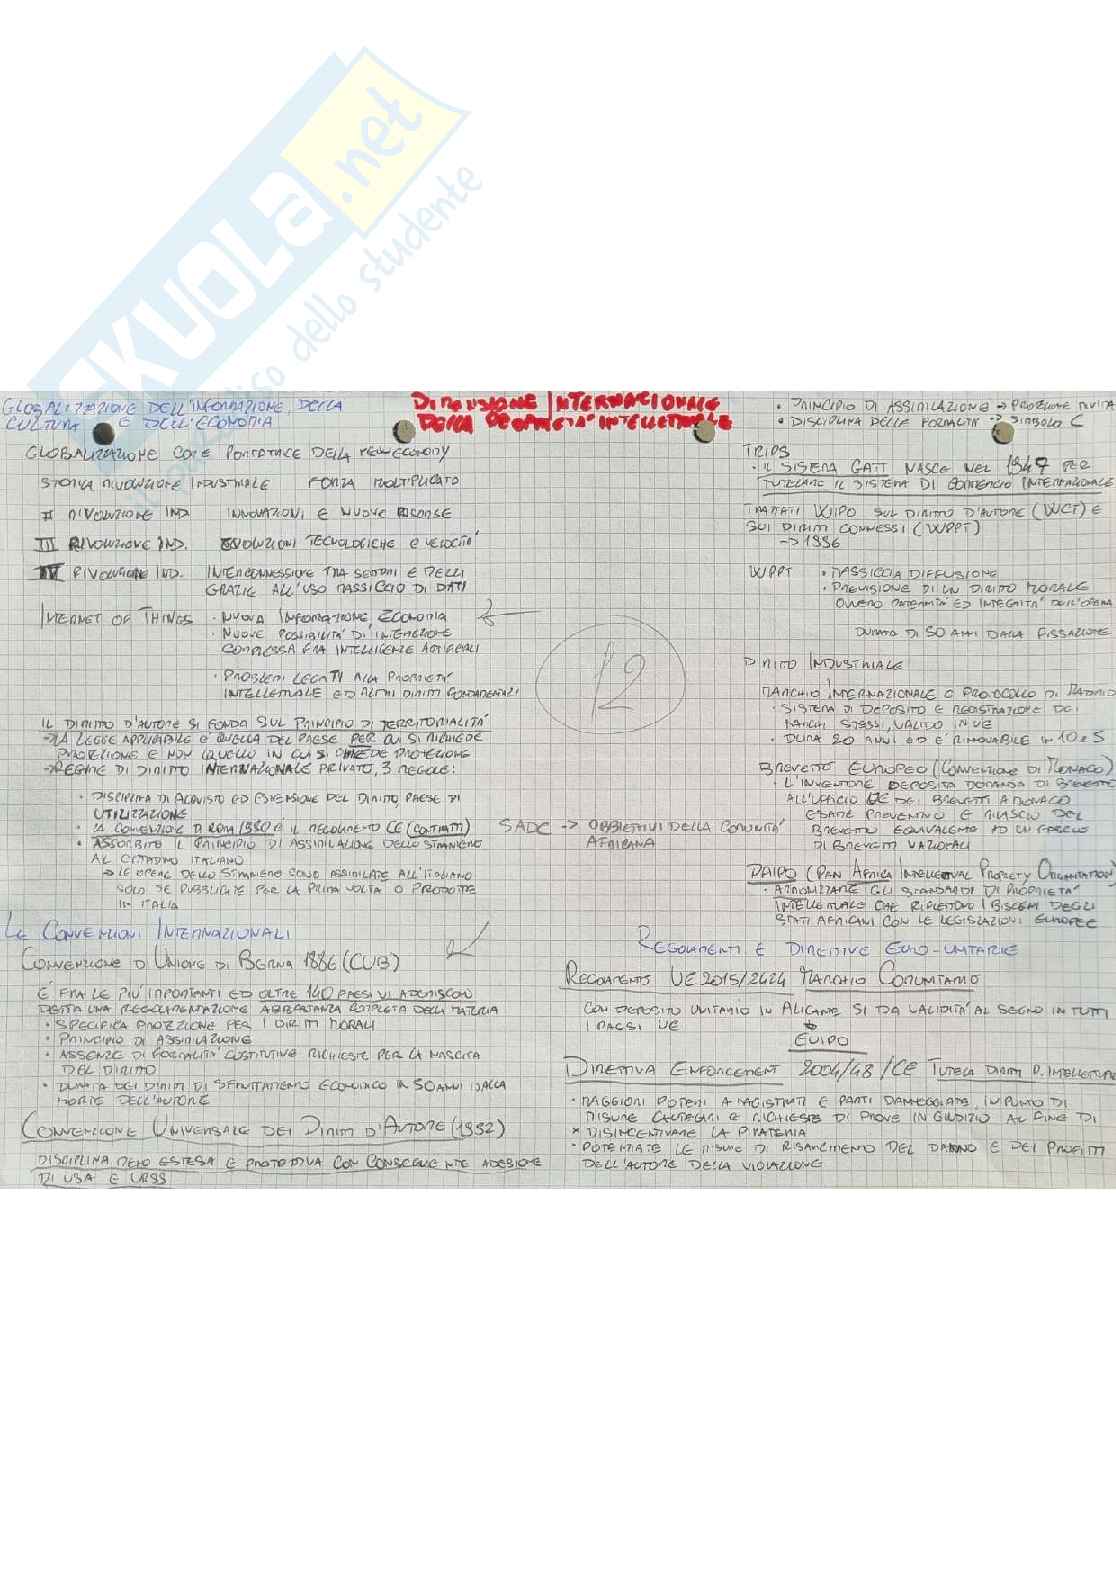 SKUOLA.net
paradiso dello studente
DIMENSIONE INTERNAZIONALE
DELLA PROPRIETA' INTELLETTUALE
GLOBALIZZAZIONE DELL'INFORMAZIONE, DELLA
CULTURA E DELL'ECONOMIA
GLOBALIZZAZIONE COME PORTATRICE DELLA NEW ECONOMY
STORIA RIVOLUZIONE INDUSTRIALE FORZA MOLTIPLICATO
II RIVOLUZIONE IND. INNOVAZIONI E NUOVE RISORSE
III RIVOLUZIONE IND. EVOLUZIONI TECNOLOGICHE E VELOCITA'
IV RIVOLUZIONE IND. INTERCONNESSIONE TRA SETTORI E DELLI
GRAZIE ALL'USO MASSICCIO DI DATI
INTERNET OF THINGS · NUOVA INFORMAZIONE, ECONOMIA
· NUOVE POSSIBILITA' DI INTERAZIONE
COMPLESSA FRA INTELLIGENZE ARTIFICIALI
· PROBLEMI LEGATI ALLA PROPRIETA'
INTELLETTUALE ED ALTRI DIRITTI FONDAMENTALI
IL DIRITTO D'AUTORE SI FONDA SUL PRINCIPIO DI TERRITORIALITA'
→ LA LEGGE APPLICABILE E' QUELLA DEL PAESE PER CUI SI RICHIEDE
PROTEZIONE E NON QUELLO IN CUI SI CHIEDE PROTEZIONE
→ REGIME DI DIRITTO INTERNAZIONALE PRIVATO, 3 REGOLE:
· DISCIPLINA DI ACQUISTO ED ESTENSIONE DEL DIRITTO, PAESE DI
UTILIZZAZIONE
· LA CONVENZIONE DI ROMA 1980 E IL REGOLAMENTO CE (CONTRATTI)
· ASSORBITO IL PRINCIPIO DI ASSIMILAZIONE DELLO STRANIERO
AL CITTADINO ITALIANO
→ LE OPERE DELLO STRANIERO SONO ASSIMILATE ALL'ITALIANO
SOLO SE PUBBLICATE PER LA PRIMA VOLTA O PRODOTTE
IN ITALIA
LE CONVENZIONI INTERNAZIONALI
CONVENZIONE D'UNIONE DI BERNA 1886 (CUB)
E' FRA LE PIU' IMPORTANTI ED OLTRE 140 PAESI VI ADERISCONO
DETTA UNA REGOLAMENTAZIONE ABBASTANZA COMPLETA DELLA MATERIA
· SPECIFICA PROTEZIONE PER I DIRITTI MORALI
· PRINCIPIO DI ASSIMILAZIONE
· ASSENZE DI FORMALITA' COSTITUTIVE RICHIESTE PER LA NASCITA
DEL DIRITTO
· DURATA DEI DIRITTI DI SFRUTTAMENTO ECONOMICO IN 50 ANNI DALLA
MORTE DELL'AUTORE
CONVENZIONE UNIVERSALE DEI DIRITTI D'AUTORE (1952)
DISCIPLINA MENO ESTESA E PROTETTIVA CON CONSEGUENTE ADESIONE
DI USA E URSS
12
SADC → OBBIETTIVI DELLA COMUNITA'
AFRICANA
· PRINCIPIO DI ASSIMILAZIONE →
· DISCIPLINA DELLE FORMALITA' → SIMBOLO C
TRIPS
· IL SISTEMA GATT NASCE NEL 1947 PER
TUTELARE IL SISTEMA DI COMMERCIO INTERNAZIONALE
TRATTATI WIPO SUL DIRITTO D'AUTORE (WCT) E
SUI DIRITTI CONNESSI (WPPT)
→ 1996
WPPT · MASSICCIA DIFFUSIONE
· PREVISIONE DI UN DIRITTO MORALE
OVVERO PATERNITA' ED INTEGRITA' DELL'OPERA
DURATA DI 50 ANNI DALLA FISSAZIONE
DIRITTO INDUSTRIALE
MARCHIO INTERNAZIONALE O PROTOCOLLO DI MADRID
· SISTEMA DI DEPOSITO E REGISTRAZIONE DEI
MARCHI STESSI, VALIDO IN UE
· DURA 20 ANNI ED E' RINNOVABILE IN 10 E 5
BREVETTO EUROPEO (CONVENZIONE DI MONACO)
· L'INVENTORE DEPOSITA DOMANDA DI BREVETTO
ALL'UFFICIO UE DEI BREVETTI A MONACO
ESAME PREVENTIVO E RILASCIO DEL
BREVETTO EQUIVALENTE AD UN FASCIO
DI BREVETTI NAZIONALI
PAIPO (PAN AFRICA INTELLECTUAL PROPERTY ORGANITATION)
· ARMONIZZARE GLI STANDARD DI PROPRIETA'
INTELLETTUALE CHE RIFLETTONO I BISOGNI DEGLI
STATI AFRICANI CON LE LEGISLAZIONI EUROPEE
REGOLAMENTI E DIRETTIVE EURO-UNITARIE
REGOLAMENTO UE 2015/2424 MARCHIO COMUNITARIO
CON DEPOSITO UNITARIO IN ALICANTE SI DA VALIDITA' AL SEGNO IN TUTTI
I PAESI UE
EUIPO
DIRETTIVA ENFORCEMENT 2004/48/CE TUTELA DIRITTI P. INTELLETTUALE
· MAGGIORI POTERI A MAGISTRATI E PARTI DANNEGGIATE, IN PUNTO DI
MISURE CAUTELARI E RICHIESTE DI PROVE IN GIUDIZIO AL FINE DI
* DISINCENTIVARE LA PIRATERIA
· POTENZIATE LE MISURE DI RISARCIMENTO DEL DANNO E DEI PROFITTI
DELL'AUTORE DELLA VIOLAZIONE